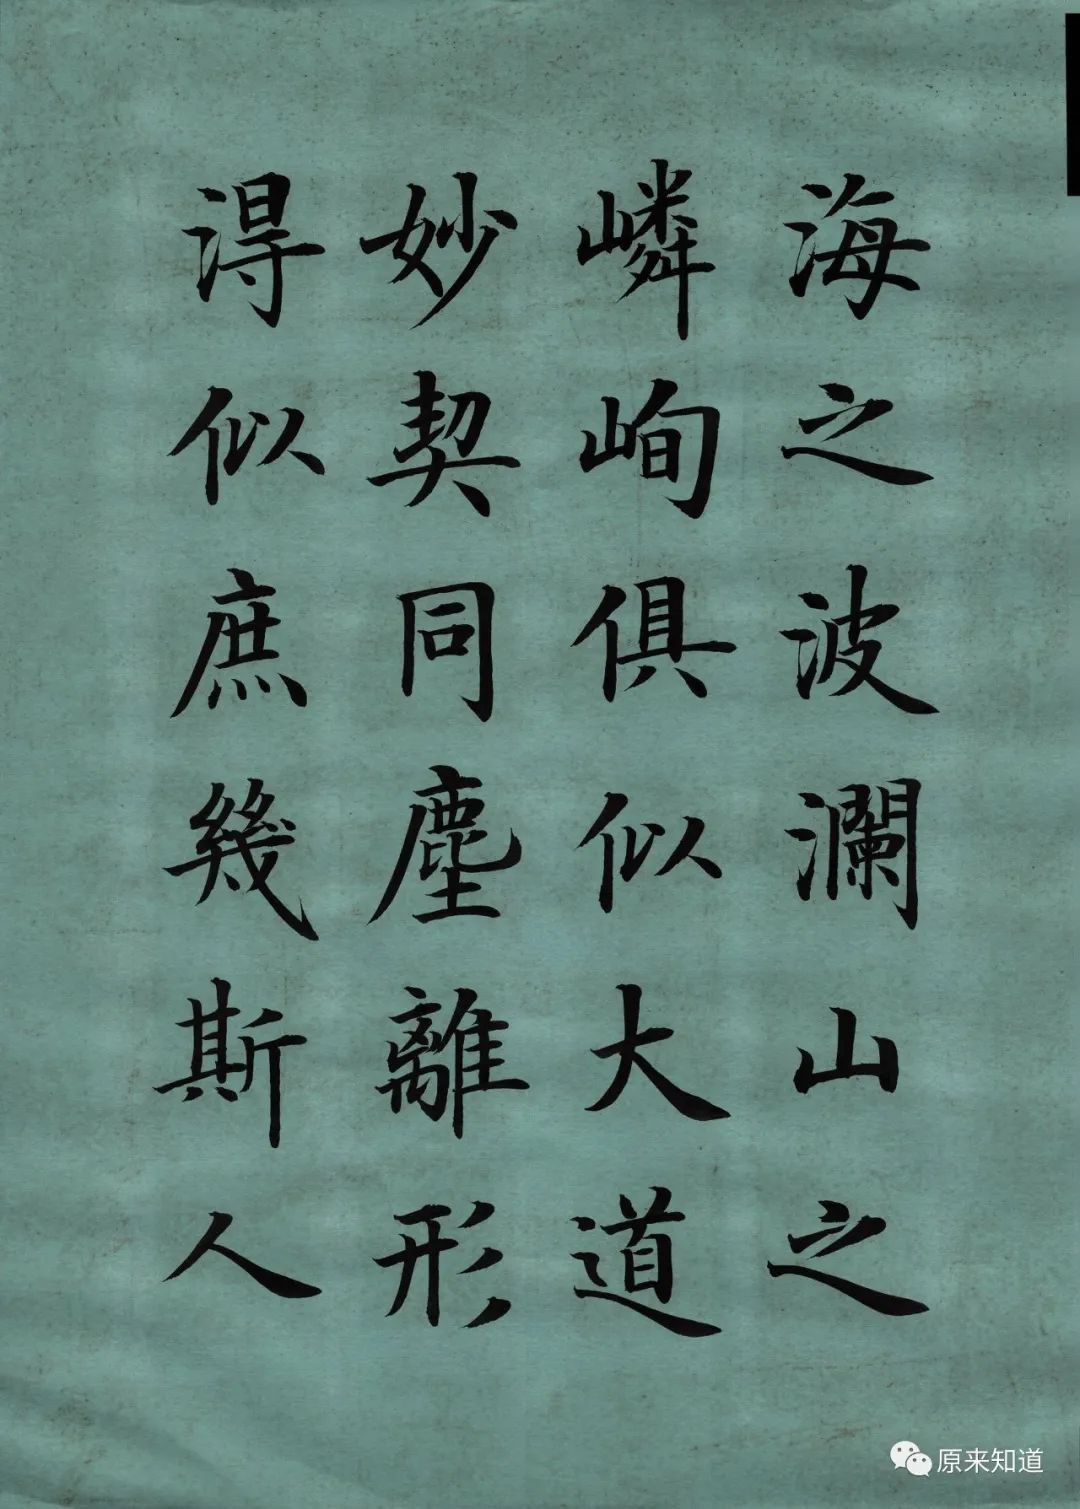 海之波瀾山之
嶙峋俱似大道
妙契同塵離形
得似庶幾斯人
原来知道